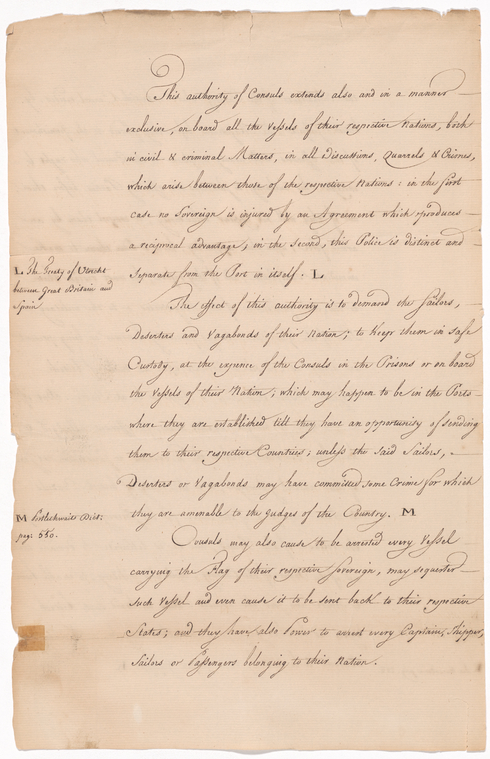 This authority of Consuls extends also and in a manner
exclusive, on board all the Vessels of their respective Nations, both
in civil & criminal Matters, in all Discussions, Quarrels & Crimes,
which arise between those of the respective Nations: in the first
case no Sovereign is injured by an Agreement which produces
a reciprocal advantage; in the Second, this Police is distinct and
Separate from the Port in itself. L
L The Treaty of Utrecht
between Great Britain and
Spain
The effect of this authority is to demand the Sailors,
Deserters and Vagabonds of their Nation; to keep them in safe
Custody, at the expence of the Consuls in the Prisons or on board
the Vessels of their Nation; which may happen to be in the Ports
where they are established till they have an opportunity of sending
them to their respective Countries; unless the said Sailors,
Deserters or Vagabonds may have committed some Crime for which
they are amenable to the Judges of the Country. M
M Postlethwaits Dict:
pag: 550.
Consuls may also cause to be arrested every Vessel
carrying the Flag of their respective Sovereign, may sequester
such Vessel and even cause it to be sent back to their respective
States; and they have also Power to arrest every Captain, Skipper,
Sailors or Passengers belonging to their Nation.